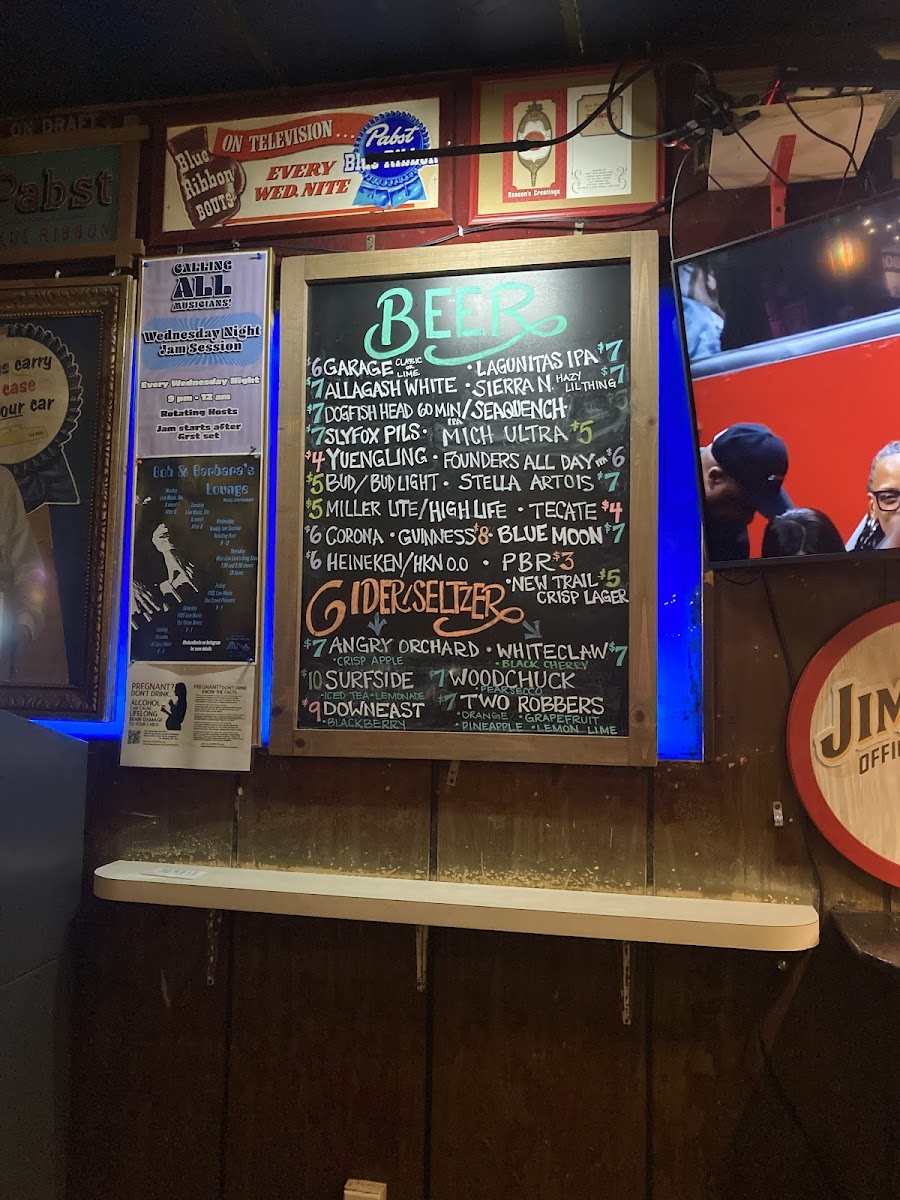 ON DRAFT
Pabst
BLUE RIBBON
Blue
Ribbon
BOUTS
ON TELEVISION...
EVERY
WED. NITE
Pabst
BLUE RIBBON
Season's Greetings
carry
case
our car
CALLING
ALL
MUSICIANS!
Wednesday Night
Jam Session
Every Wednesday Night
9 pm - 12 am
Rotating Hosts
Jam starts after
first set
Bob & Barbara's
Lounge
PREGNANT?
DON'T DRINK.
ALCOHOL
CAN CAUSE
LIFELONG
BRAIN DAMAGE
TO YOUR CHILD.
PREGNANT? DON'T DRINK
KNOW THE FACTS.
BEER
$6 GARAGE CLASSIC OR LIME • LAGUNITAS IPA $7
$7 ALLAGASH WHITE • SIERRA N. HAZY LIL THING $7
$7 DOGFISH HEAD 60 MIN IPA / SEAQUENCH
$7 SLYFOX PILS • MICH ULTRA $5
$4 YUENGLING • FOUNDERS ALL DAY IPA $6
$5 BUD/BUD LIGHT • STELLA ARTOIS $7
$5 MILLER LITE/HIGH LIFE • TECATE $4
$6 CORONA • GUINNESS $8 • BLUE MOON $7
$6 HEINEKEN/HKN 0.0 • PBR $3
• NEW TRAIL $5
CRISP LAGER
CIDER/SELTZER
$7 ANGRY ORCHARD • WHITECLAW $7
• CRISP APPLE • BLACK CHERRY
$10 SURFSIDE $7 WOODCHUCK
• ICED TEA • LEMONADE PEARSECCO
$9 DOWNEAST $7 TWO ROBBERS
• BLACKBERRY • ORANGE • GRAPEFRUIT
• PINEAPPLE • LEMON LIME
JIM
OFFIC